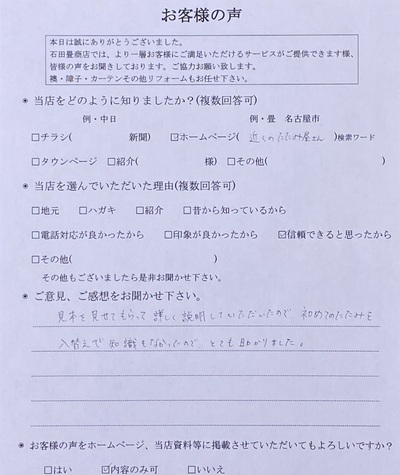 お客様の声
本日は誠にありがとうございました。
石田畳商店では、より一層お客様にご満足いただけるサービスがご提供できます様、
皆様の声をお聞きしております。ご協力お願い致します。
襖・障子・カーテンその他リフォームもお任せ下さい。
◉ 当店をどのように知りましたか?(複数回答可)
例・中日 例・畳 名古屋市
□チラシ( 新聞) ☑ホームページ( 近くのたたみ屋さん )検索ワード
□タウンページ □紹介( 様) □その他( )
◉ 当店を選んでいただいた理由(複数回答可)
□地元 □ハガキ □紹介 □昔から知っているから
□電話対応が良かったから □印象が良かったから ☑信頼できると思ったから
□その他( )
その他もございましたら是非お聞かせ下さい。
◉ ご意見、ご感想をお聞かせ下さい。
見本を見せてもらって 詳しく説明していただいたので 初めてのたたみを
入替えで 知識もなかったので とても助かりました。
◉ お客様の声をホームページ、当店資料等に掲載させていただいてもよろしいですか?
□はい ☑内容のみ可 □いいえ